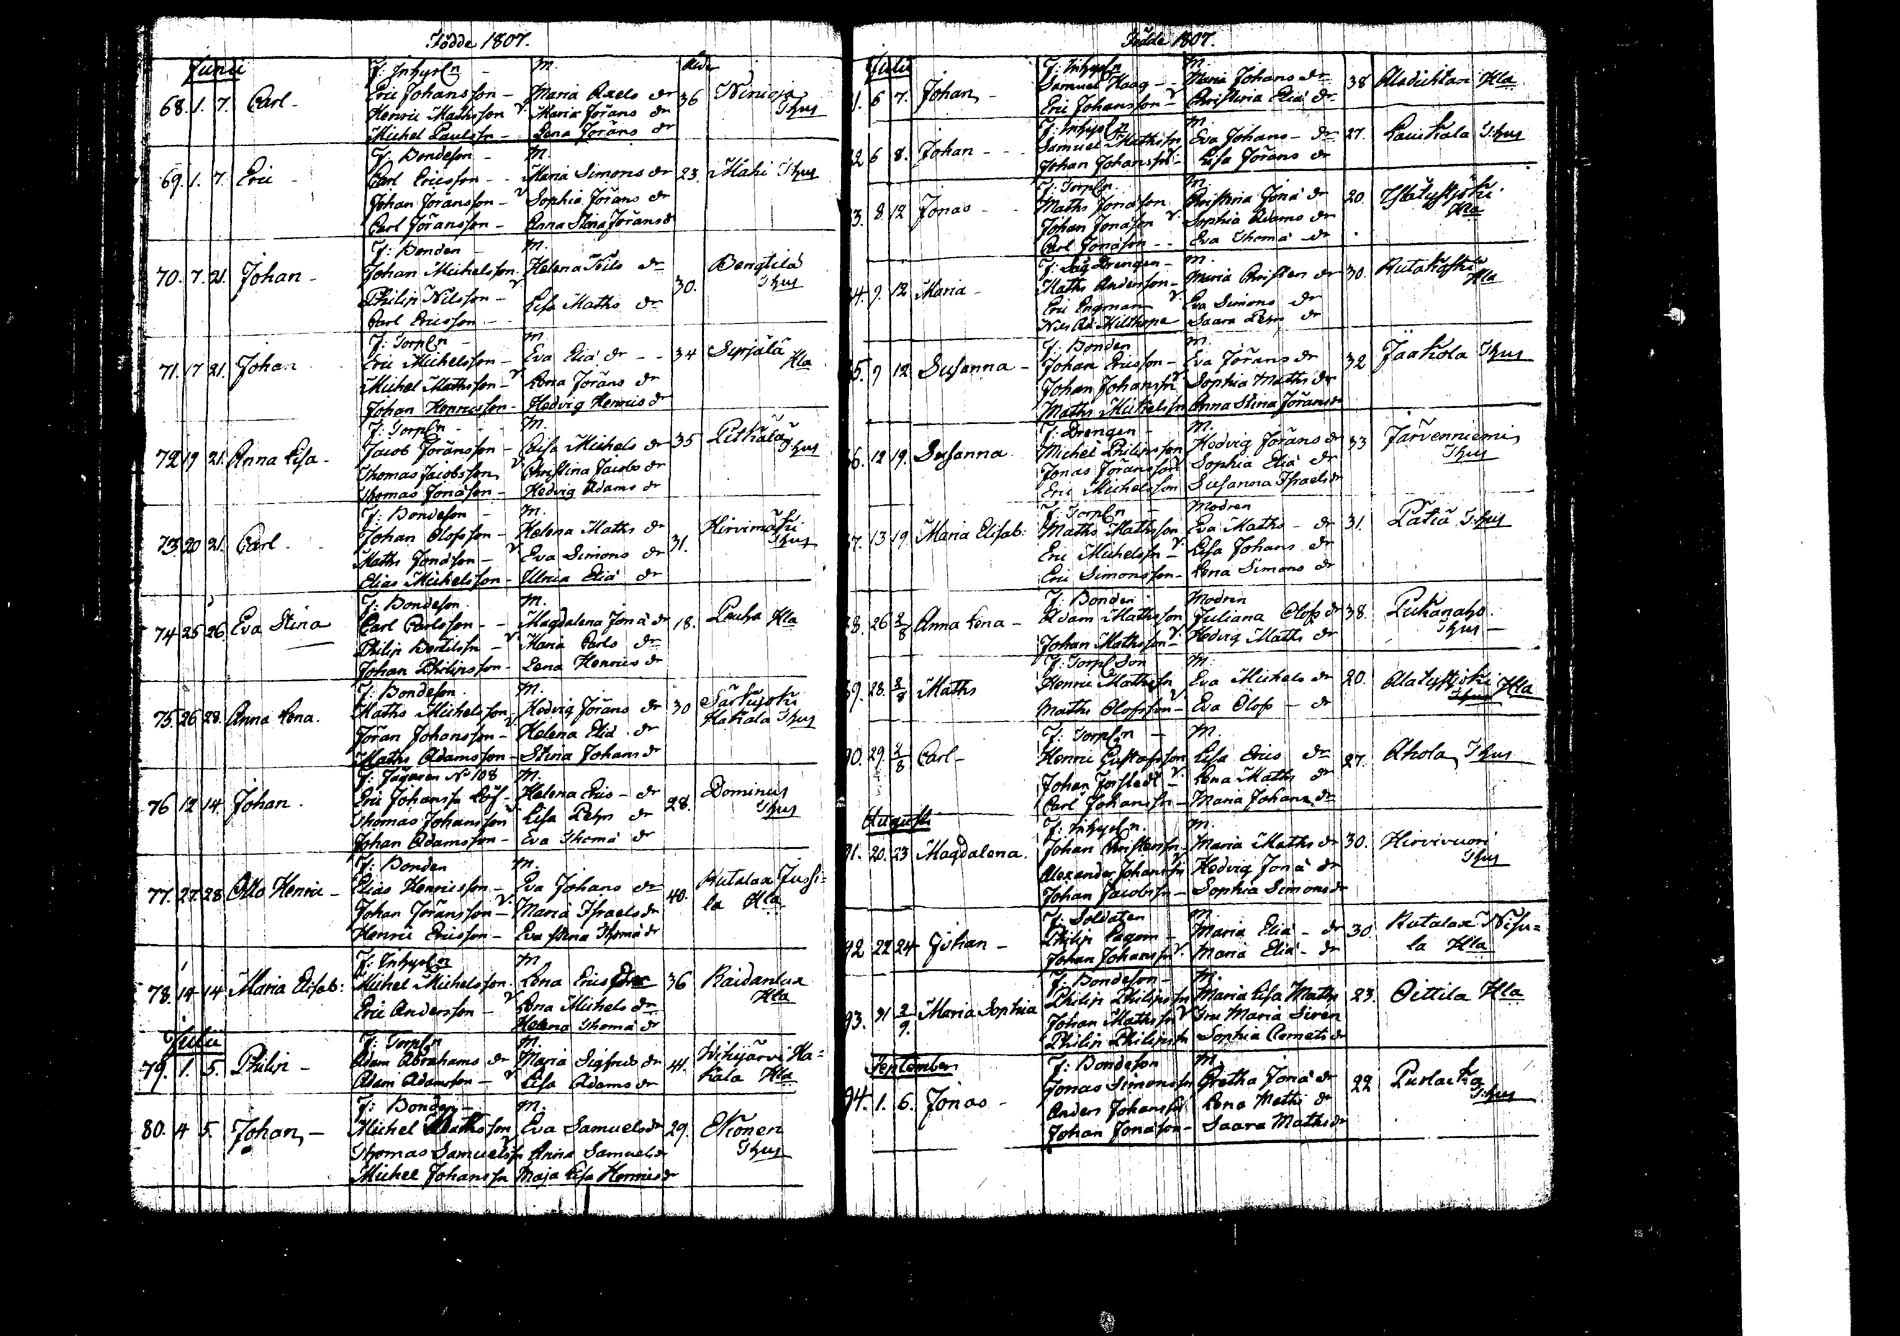 Födde 1807.
Junii
F: Inhysln - M. Ålder
68. 1. 7. Carl - Eric Johansson - Maria Axels dr 36 Ninioja
Henric Mathsson v Maria Jörans dr Thus
Michel Paulsson - Lena Jörans dr
F: Bondeson - M.
69. 1. 7. Eric - Carl Ericsson - Maria Simons dr 23. Mahi Thus
Johan Joransson - v Sophia Jörans dr
Carl Joransson - Anna Stina Joransdr
F: Bonden M.
70. 7. 21. Johan - Johan Michelsson Helena Nils dr 30. Bengtilä
Philip Nilsson - v Lisa Maths dr Thus
Carl Ericsson
F: Torpln - M.
71. 17 21. Johan Eric Michelsson - Eva Eliæ dr - - 34 Syrjälä
Michel Mathsson - v Lena Jörans dr Kla
Johan Henricsson - Hedvig Henrics dr
F: Torpln - M.
72 19 21. Anna Lisa - Jacob Joransson - Caisa Michels dr 35
Thomas Jacobsson v Christina Jacobs dr Thus
Thomas Jonasson - Hedvig Adams dr
F: Bondeson - M.
73. 20 21. Carl Johan Olofsson - Helena Maths dr 31. Hirvimäki
Maths Jonasson v Eva Simons dr Thus
Elias Michelsson - Ulrica Eliæ dr
F: Bondeson. M.
74 25 26. Eva Stina Carl Carlsson - - Magdalena Jonæ dr 18. Pauha Kla
Philip v Maria Carls dr
Johan Philipsson - Lena Henrics dr
F: Bondeson. M.
75. 26 28. Anna Lena. Maths Michelsson Hedvig Jörans dr 30
Joran Johansson - v Helena Eliæ dr Hakala Thus
Maths Adamsson - Stina Johans dr
F: Jägaren No 108 M.
76 12 14. Johan. Eric Johansson Löf - Helena Erics - dr 28. Dominus
Thomas Johansson v Lisa Pehrs dr Thus
Johan Adamsson - Eva Thomæ dr
F: Bonden M.
77. 27. 28 Otto Henric - Elias Henricsson - Eva Johans dr 40. Rutalax Jussi=
Johan Joransson - v Maria Israels dr la Kla
Henric Ericsson - Eva Stina Thomæ dr
F: Inhysln M
78. 14 14 Maria Elisab: Michel Michelsson. Lena Erics dr 36 Raidanlax
Eric Andersson - v Lena Michels dr Kla
Helena Thomæ dr
Julii
F: Torpln M.
79. 1. 5. Philip - Adam Abrahams dr Maria Sigfrids dr 41. Wihijärvi Ha=
Adam Adamsson - v Lisa Adams dr kala Kla
F: Bonden - M.
80. 4 5. Johan - Michel Mathsson Eva Samuelsdr 29. Ekonen
Thomas Samuelsson v Anna Samuelsdr Thus
Michel Johansson Maja Lisa Henricsdr
Födde 1807.
Julii
F: Inhysln M.
1. 6 7. Johan - Samuel Haag - - Maria Johansdr 38 Aladichtari Kla
Eric Johansson - v Christina Eliæ dr
F: Inhysln M.
2 6 8. Johan - - Samuel Mathsson Eva Johans - dr 27. Lauckala Thus
Johan Johansson v Lisa Jörans dr
F: Torpln M.
3. 8 12 Jonas - Maths Jonasson Christina Jonæ dr 20.
Johan Jonasson v. Sophia Adams dr Kla
Carl Jonasson - - Eva Thomæ dr
F: Såg Drengen - M.
4. 9. 12 Maria - Maths Andersson - Maria Christers dr 30. Rutakoski
Eric Engman v. Eva Simons dr Kla
Nils Ad. Milthope Saara Pehrs dr
F: Bonden M.
5. 9 12. Susanna - Johan Ericsson - Eva Jörans dr 32 Jaakola Thus
Johan Johansson v Sophia Maths dr
Maths Michelsson Anna Stina Joransdr
F: Drengen - M.
6. 12 19. Susanna. Michel Philipsson Hedvig Jörans dr 33 Järvenniemi
Jonas Joransson v Sophia Eliæ dr Thus
Eric Michelsson Susanna Israelsdr
F: Torpln - Modren
7. 13 19. Maria Elisab: Maths Mathsson Eva Maths - dr 31. Pätiä Thus
Eric Michelsson - v. Lisa Johans dr
Eric Simonsson - Lena Simons dr
F: Bonden Modren
8. 26 2/8 Anna Lena - Adam Mathsson Juliana Olofs dr 38. Pukanaho
Johan Mathsson - v. Hedvig Maths dr Thus -
F: Torpl Son M.
9. 28. 2/8 Maths Henric Mathsson Eva Michels dr 20. Kla
Maths Olofsson - v Eva Olofs - dr
F: Torpln - M.
90. 29. 2/8 Carl - Henric Gustafsson Lisa Erics dr 27. Ahola Thus
Johan Forstedt - v. Lena Maths dr
Carl Johansson - Maria Johans dr
Augusti
F: Inhysln M.
91. 20. 23 Magdalena. Johan Christersson - Maria Maths dr 30. Hirvivuori
Alexander Johansson v Hedvig Jonæ dr Thus
Johan Jacobsson - Sophia Simonsdr
F: Soldaten M.
92 22 24 Johan - Philip Lagom - Maria Eliæ - dr 30 Rutalax Nisu=
Johan Johansson v. Maria Eliæ - dr la Kla
F: Bondeson - M.
93. 31 2/9. Maria Sophia Philip Philipsson Maria Lisa Maths 23. Oittila Kla
Johan Mathsson v Fru Maria Siren
Philip Philipsson Sophia Clemetsdr
September
F: Bondeson M
94. 1. 6. Jonas - Jonas Simonsson Gretha Jonæ dr 22
Anders Johansson v Lena Maths dr Thus
Johan Jonasson - Saara Mathsdr